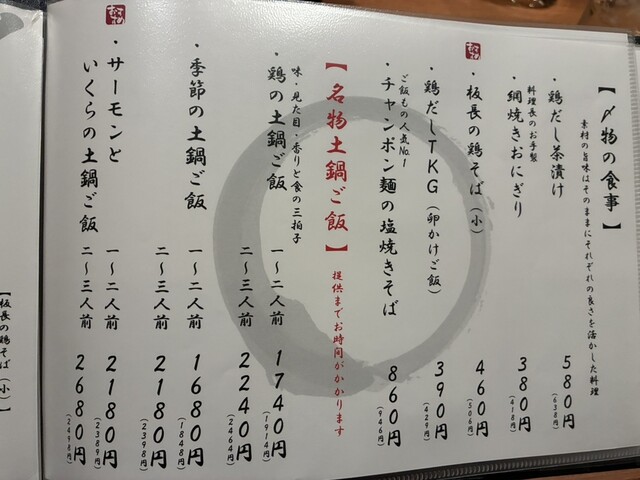 【〆物の食事】
素材の旨味はそのままにそれぞれの良さを活かした料理
・鶏だし茶漬け 580円
(638円)
料理長のお手製
・網焼きおにぎり 380円
(418円)
おすすめ
・板長の鶏そば(小) 460円
(506円)
・鶏だしTKG(卵かけご飯) 390円
(429円)
ご飯もの人気No.1
・チャンポン麺の塩焼きそば 860円
(946円)
【名物土鍋ご飯】提供までお時間がかかります
味・見た目・香りと食の三拍子
・鶏の土鍋ご飯 一～二人前 1740円
(1914円)
二～三人前 2240円
(2464円)
・季節の土鍋ご飯 一～二人前 1680円
(1848円)
二～三人前 2180円
(2398円)
おすすめ
・サーモンと
いくらの土鍋ご飯
一～二人前 2180円
(2389円)
二～三人前 2680円
(2498円)
【板長の鶏そば(小)】